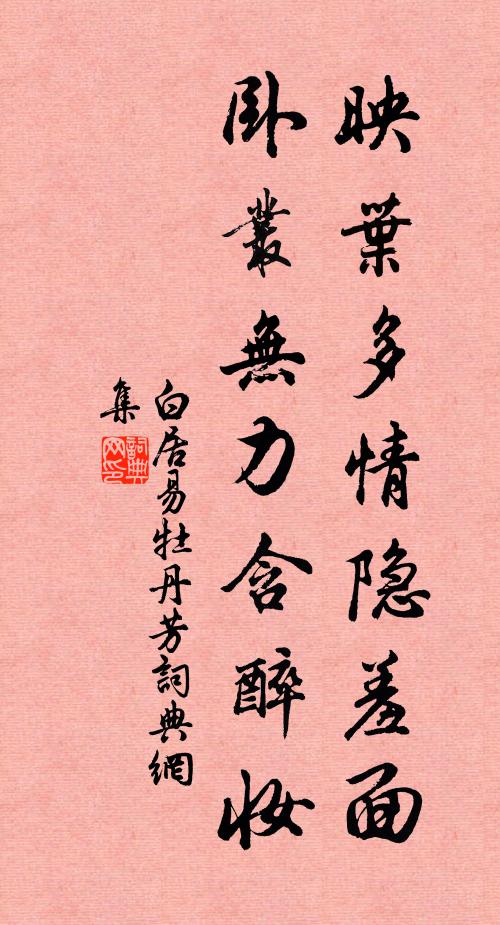 映葉多情隐羞面
卧叢無力含醉妆
白居易牡丹芳詞典網
集
詞典
网印